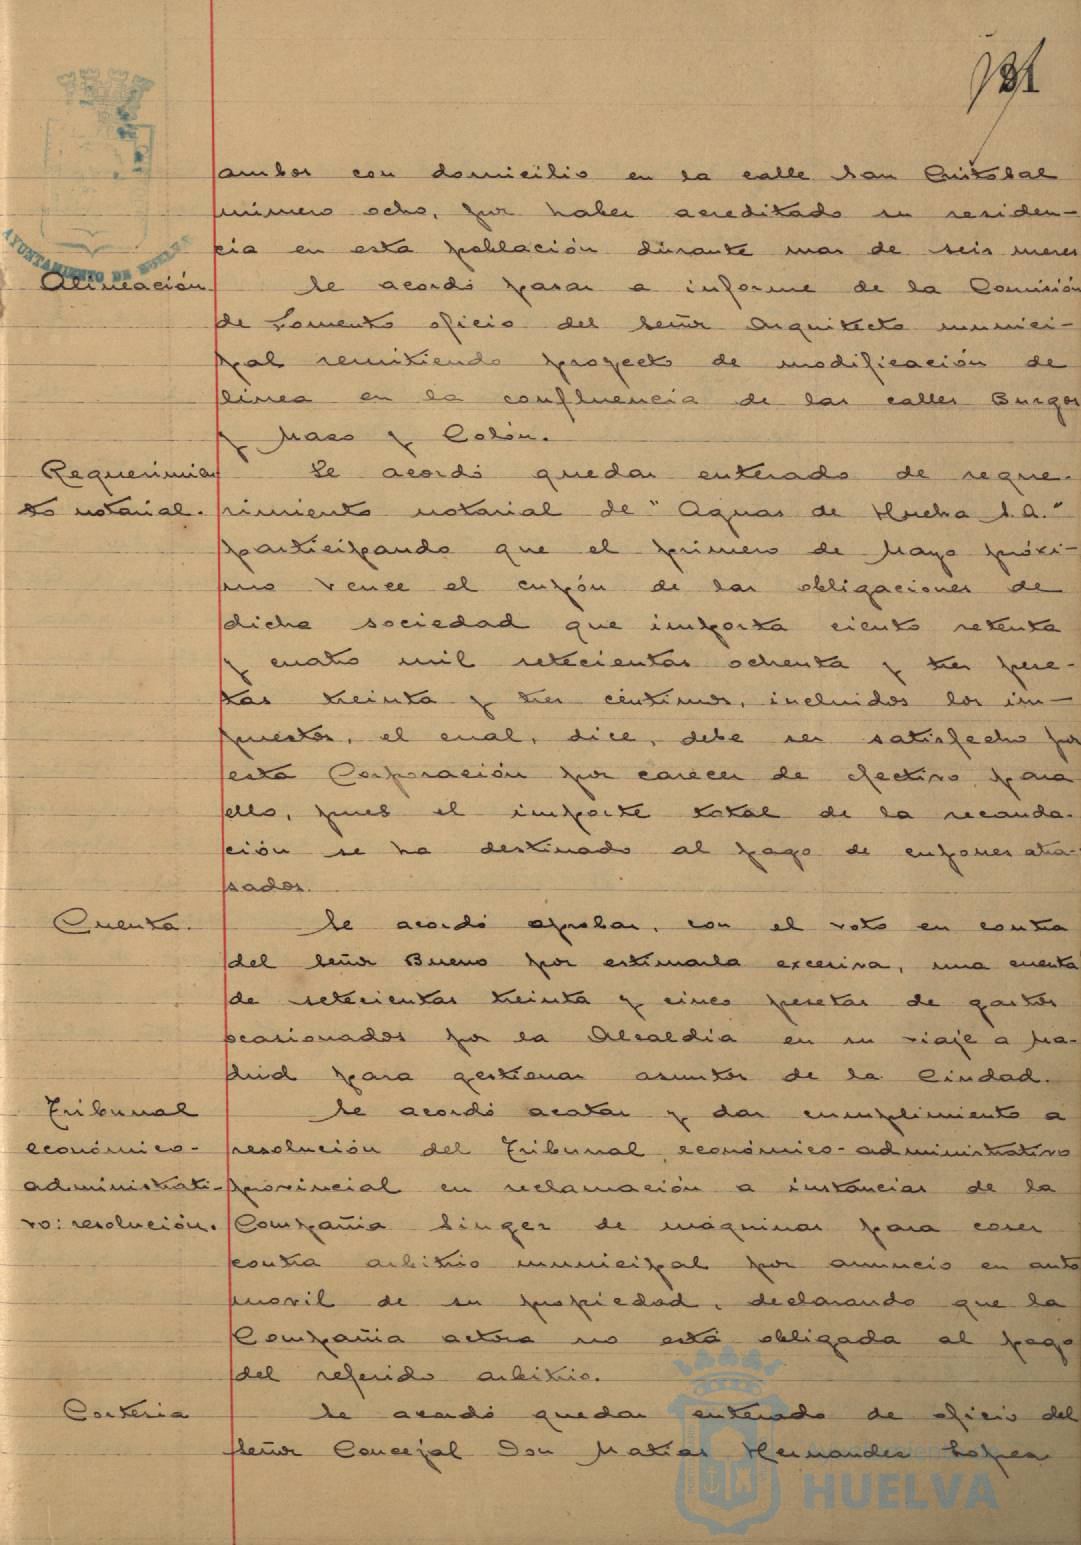 131
AYUNTAMIENTO DE HUELVA
ambos con domicilio en la calle San Cristobal
número ocho, por haber acreditado su residen-
cia en esta población durante mas de seis meses
Alineación. Se acordó pasar a informe de la Comisión
de Fomento oficio del Señor Arquitecto munici-
pal remitiendo proyecto de modificación de
línea en la confluencia de las calles Burgos
y Mazo y Colón.
Requerimien Se acordó quedar enterado de reque-
to notarial. rimiento notarial de "Aguas de Huelva S.A."
participando que el primero de Mayo próxi-
mo vence el cupón de las obligaciones de
dicha sociedad que importa ciento setenta
y cuatro mil setecientas ochenta y tres pese-
tas treinta y tres céntimos, incluidos los im-
puestos, el cual, dice, debe ser satisfecho por
esta Corporación por carecer de efectivo para
ello, pues el importe total de la recauda-
ción se ha destinado al pago de cupones atra-
sados.
Cuenta. Se acordó aprobar, con el voto en contra
del Señor Bueno por estimarla excesiva, una cuenta
de setecientas treinta y cinco pesetas de gastos
ocasionados por la Alcaldia en su viaje a Ma-
drid para gestionar asuntos de la Ciudad.
Tribunal Se acordó acatar y dar cumplimiento a
económico- resolución del Tribunal económico-administrativo
administrati- provincial en reclamación a instancias de la
vo: resolución. Compañia Singer de máquinas para coser
contra arbitrio municipal por anuncio en auto
movil de su propiedad, declarando que la
Compañia actora no está obligada al pago
del referido arbitrio.
Cortesia Se acordó quedar enterado de oficio del
Señor Concejal Don Matias Hernandez Lopez
HUELVA